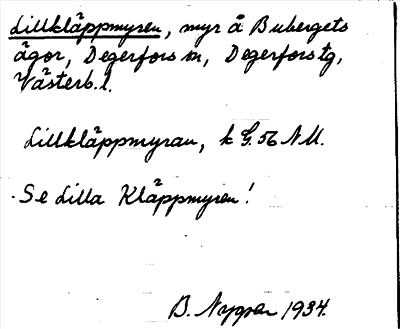 Lillkläppmyren, myr å Bubergets
ägor, Degerfors sn, Degerfors tg,
Västerb.l.
Lillkläppmyran, k G.56 NU.
Se Lilla Kläppmyren!
B. Nygren 1934.